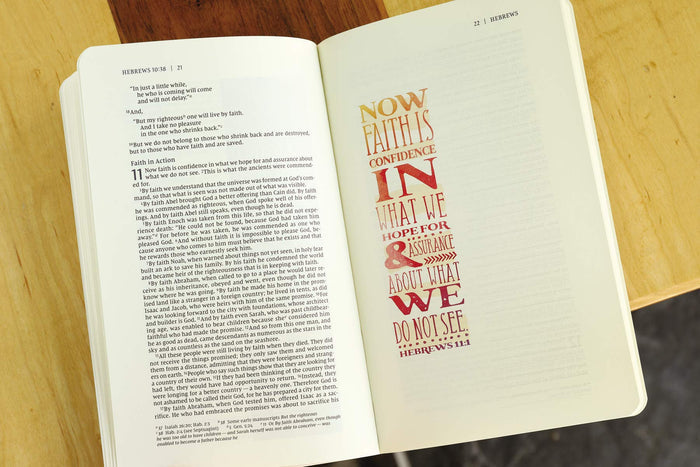 HEBREWS 10:38 | 21
"In just a little while,
he who is coming will come
and will not delay."ᵃ
³⁸And,
"But my righteousᵇ one will live by faith.
And I take no pleasure
in the one who shrinks back."ᶜ
³⁹But we do not belong to those who shrink back and are destroyed,
but to those who have faith and are saved.
Faith in Action
11 Now faith is confidence in what we hope for and assurance about
what we do not see. ²This is what the ancients were commend-
ed for.
³By faith we understand that the universe was formed at God's com-
mand, so that what is seen was not made out of what was visible.
⁴By faith Abel brought God a better offering than Cain did. By faith
he was commended as righteous, when God spoke well of his offer-
ings. And by faith Abel still speaks, even though he is dead.
⁵By faith Enoch was taken from this life, so that he did not expe-
rience death: "He could not be found, because God had taken him
away."ᵈ For before he was taken, he was commended as one who
pleased God. ⁶And without faith it is impossible to please God, be-
cause anyone who comes to him must believe that he exists and that
he rewards those who earnestly seek him.
⁷By faith Noah, when warned about things not yet seen, in holy fear
built an ark to save his family. By his faith he condemned the world
and became heir of the righteousness that is in keeping with faith.
⁸By faith Abraham, when called to go to a place he would later re-
ceive as his inheritance, obeyed and went, even though he did not
know where he was going. ⁹By faith he made his home in the prom-
ised land like a stranger in a foreign country; he lived in tents, as did
Isaac and Jacob, who were heirs with him of the same promise. ¹⁰For
he was looking forward to the city with foundations, whose architect
and builder is God. ¹¹And by faith even Sarah, who was past childbear-
ing age, was enabled to bear children because sheᵉ considered him
faithful who had made the promise. ¹²And so from this one man, and
he as good as dead, came descendants as numerous as the stars in the
sky and as countless as the sand on the seashore.
¹³All these people were still living by faith when they died. They did
not receive the things promised; they only saw them and welcomed
them from a distance, admitting that they were foreigners and strang-
ers on earth. ¹⁴People who say such things show that they are looking for
a country of their own. ¹⁵If they had been thinking of the country they
had left, they would have had opportunity to return. ¹⁶Instead, they
were longing for a better country — a heavenly one. Therefore God is
not ashamed to be called their God, for he has prepared a city for them.
¹⁷By faith Abraham, when God tested him, offered Isaac as a sac-
rifice. He who had embraced the promises was about to sacrifice his
37 Isaiah 26:20; Hab. 2:3 38 Some early manuscripts But the righteous
38 Hab. 2:4 (see Septuagint) 5 Gen. 5:24 11 Or By faith Abraham, even though
he was too old to have children — and Sarah herself was not able to conceive — was
enabled to become a father because he
22 | HEBREWS
NOW
FAITH IS
CONFIDENCE
IN
WHAT WE
HOPE FOR
& ASSURANCE
ABOUT WHAT
WE
DO NOT SEE.
HEBREWS 11:1